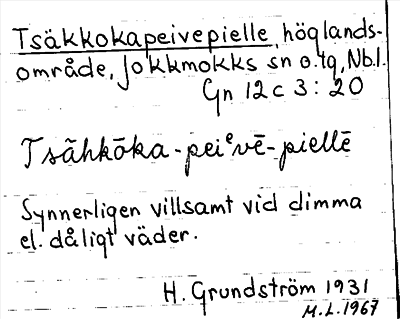 Tsäkkokapeivepielle, höglands-
område, Jokkmokks sn o. tg, Nb. l.
Gn 12 c 3 : 20
Tsäh̄kōka - peiᵉvē - piellē
Synnerligen villsamt vid dimma
el. dåligt väder.
H. Grundström 1931
M.L. 1967